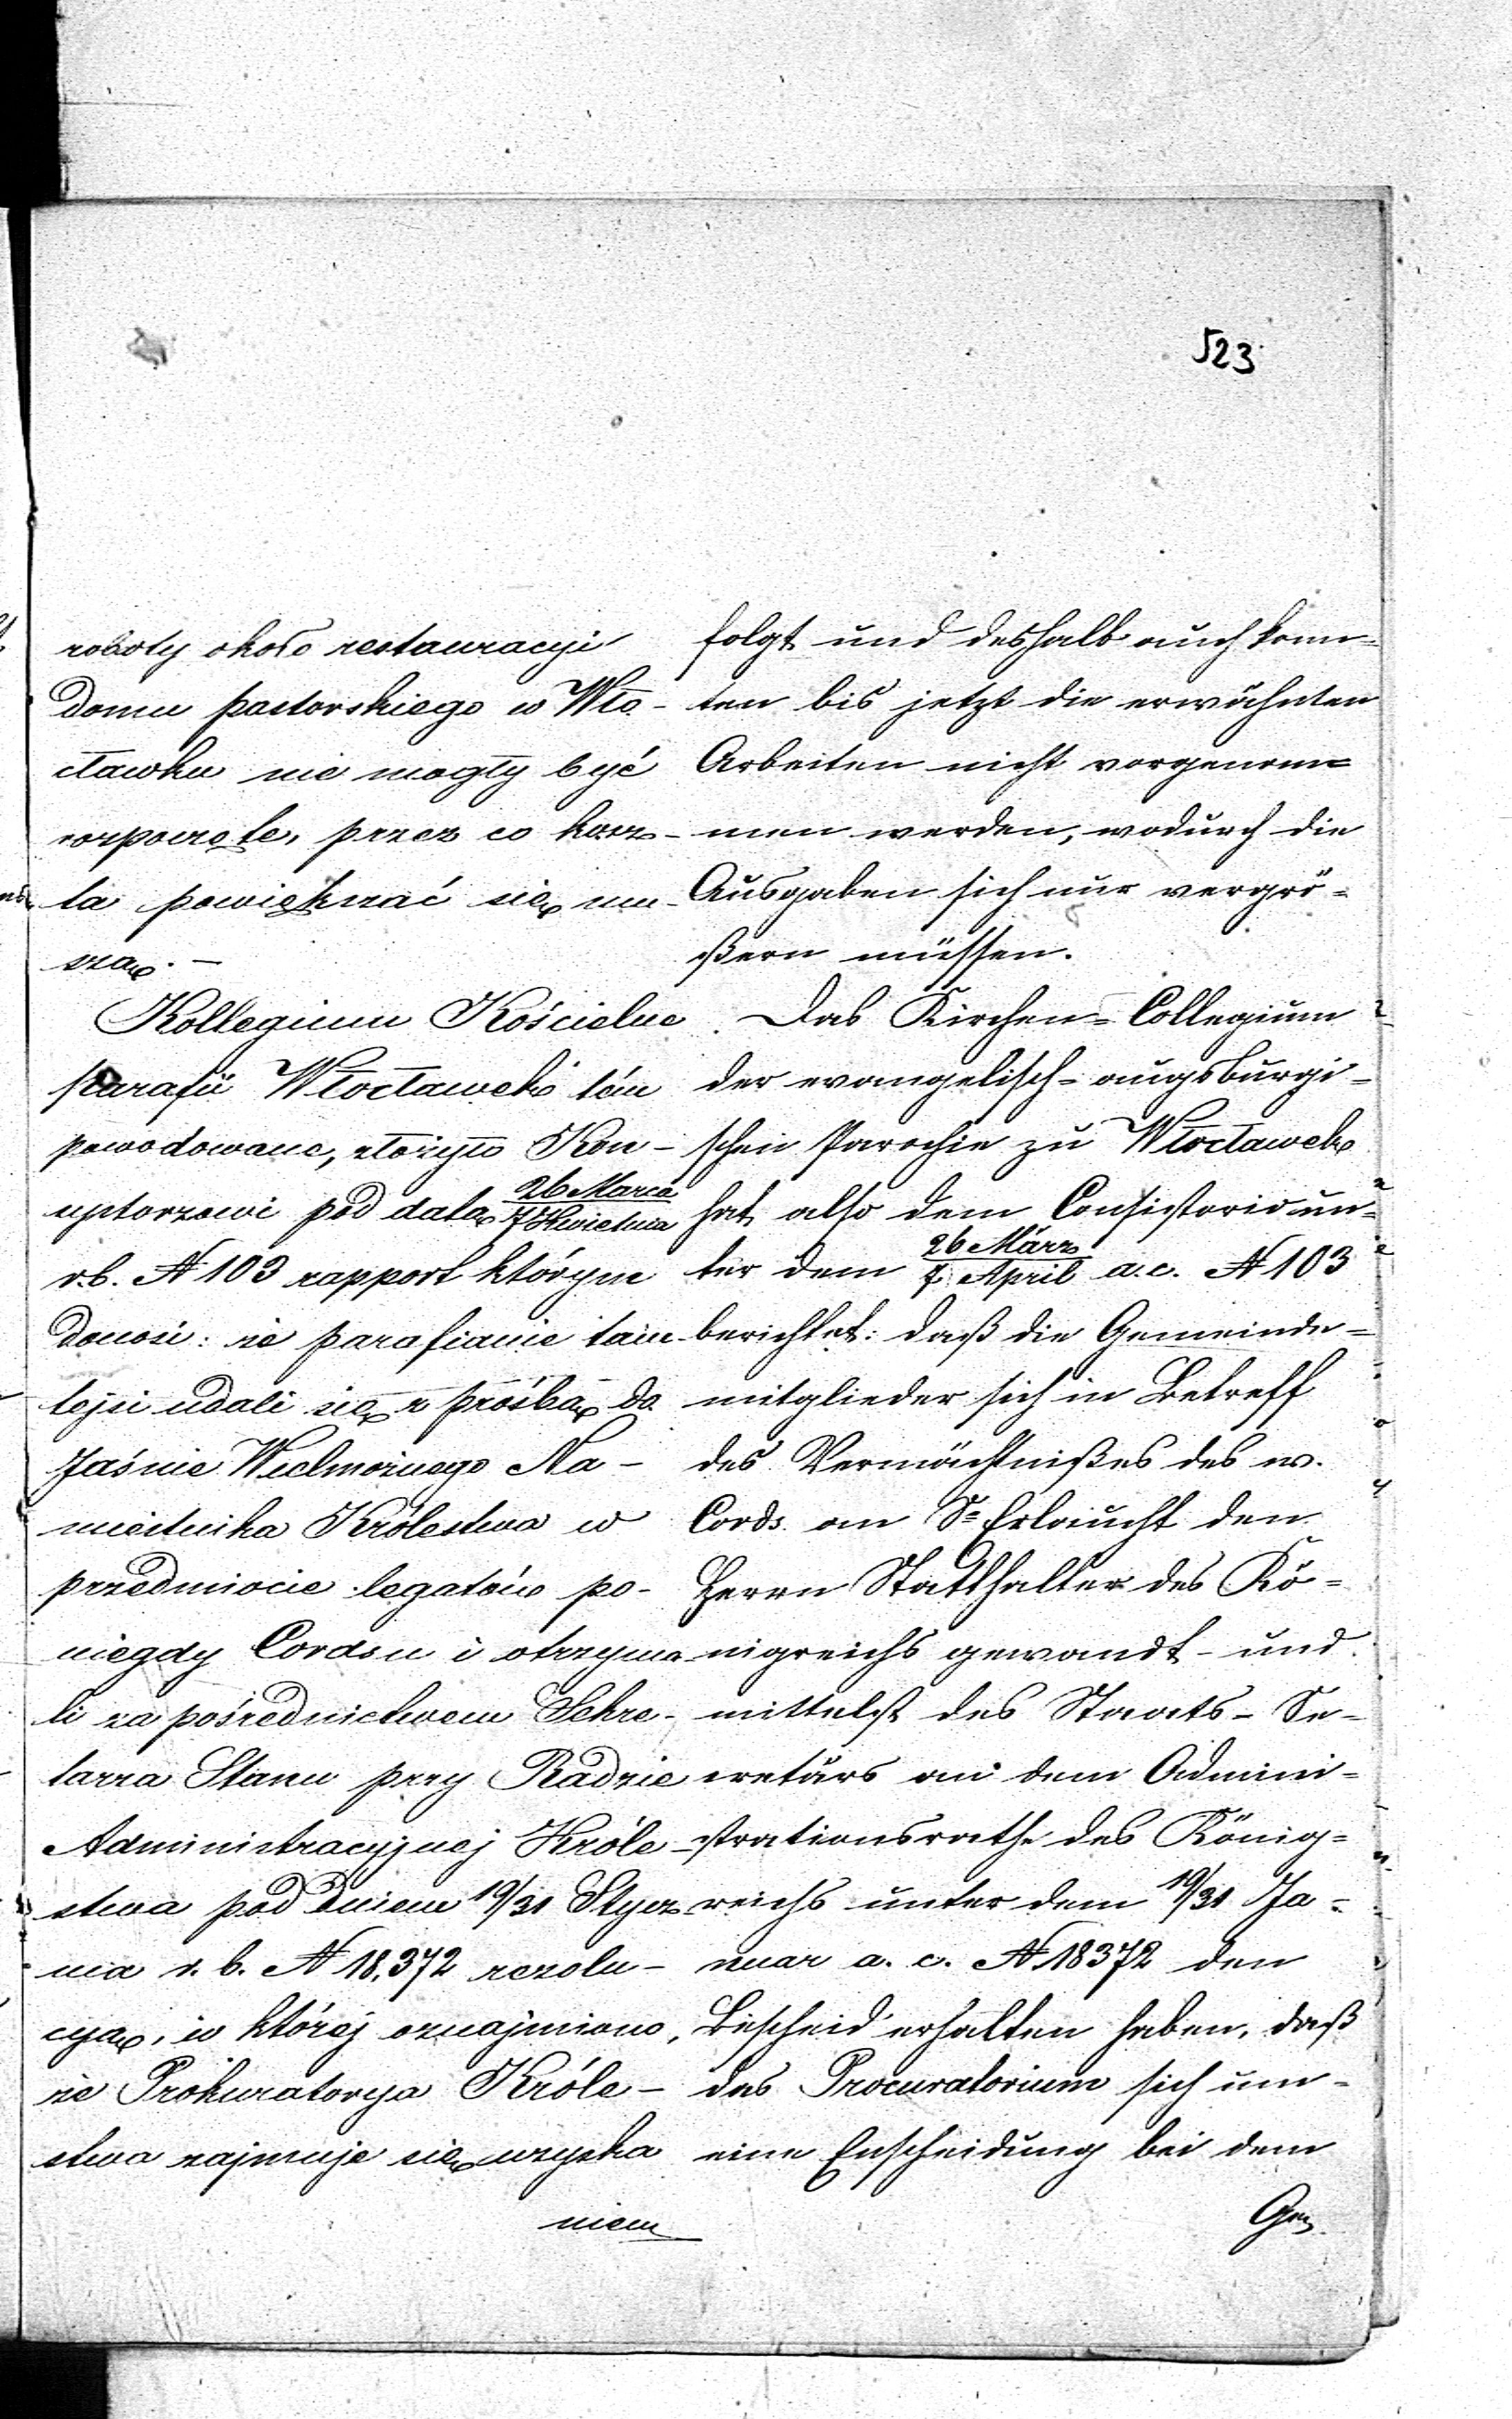 523
roboty około restauracyi
domu pastorskiego w Wło-
cławku nie mogły być
rozpoczęte, przez co kosz-
ta powiększać się mu-
szą. —
Kollegium Kościelne
parafii Włocławek tém
powodowane, złożyło Kon-
systorzowi pod datą 26 Marca / 7 Kwietnia
r. b. N 103 rapport którym
donosi: że parafianie tam-
tejsi udali się z prośbą do
Jaśnie Wielmożnego Na-
miestnika Królestwa w
przedmiocie legatów po-
niegdy Cordsu i otrzyma-
li za pośrednictwem Sekre-
tarza Stanu przy Radzie
Administracyjnej Króle-
stwa pod dniem 19/31 Stycz-
nia r. b. N 18,372 rezolu-
cyą, w której oznajmiono,
że Prokuratorya Króle-
stwa zajmuje się uzyska
niem
folgt und deshalb auch konn-
ten bis jetzt die erwähnten
Arbeiten nicht vorgenom=
men werden, wodurch die
Ausgaben sich nur vergrö=
ßern müssen.
Das Kirchen=Collegium
der evangelisch=augsburgi=
schen Parochie zu Włocławek
hat also dem Consistorio un=
ter dem 26 März / 7 April a. c. N 103
berichtet: daß die Gemeinde=
mitglieder sich in Betreff
des Vermächtnißes des w.
Cords an Se Erlaucht den
Herrn Statthalter des Kö=
nigreichs gewandt - und
mittelst des Staats-Se-
cretärs an dem Admini=
strationsrathe des König=
reichs unter dem 19/31 Ja=
nuar a. c. N 18372 den
Bescheid erhalten haben, daß
das Procuratorium sich um
eine Enscheidung bei dem